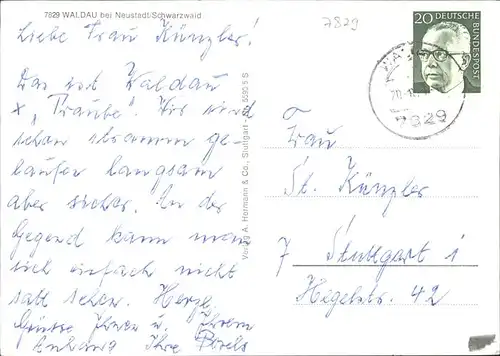 7829 WALDAU bei Neustadt/Schwarzwald
7829
Liebe Frau Künzler!
Das ist Waldau
x "Traube". Hier wird
schon stramm ge-
laufen langsam
aber sicher. In der
Gegend kann man
sich einfach nicht
satt sehen. Herzl.
Grüsse Ihnen u. Ihrem
Anhang Ihre
Verlag A. Hermann & Co., Stuttgart
20 DEUTSCHE
BUNDESPOST
7829
Frau
St. Künzler
7 Stuttgart 1
Hegelstr. 42